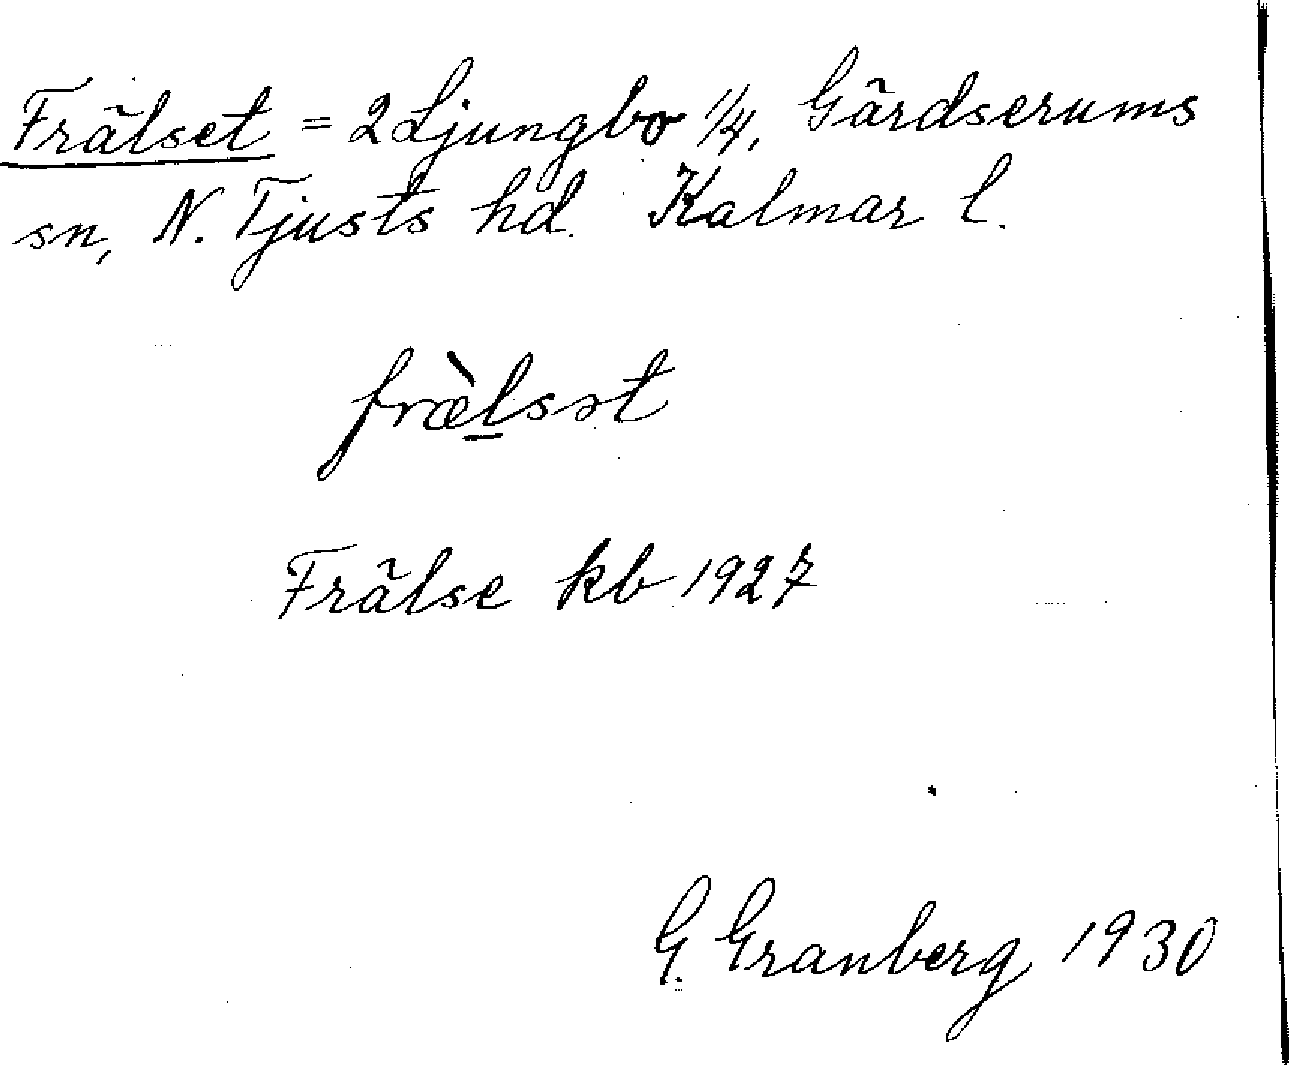 Frälset = 2 Ljungbo 1/4, Gärdserums
sn, N. Tjusts hd. Kalmar l.
fræ̀l̲sət
Frälse kb 1927
G. Granberg 1930